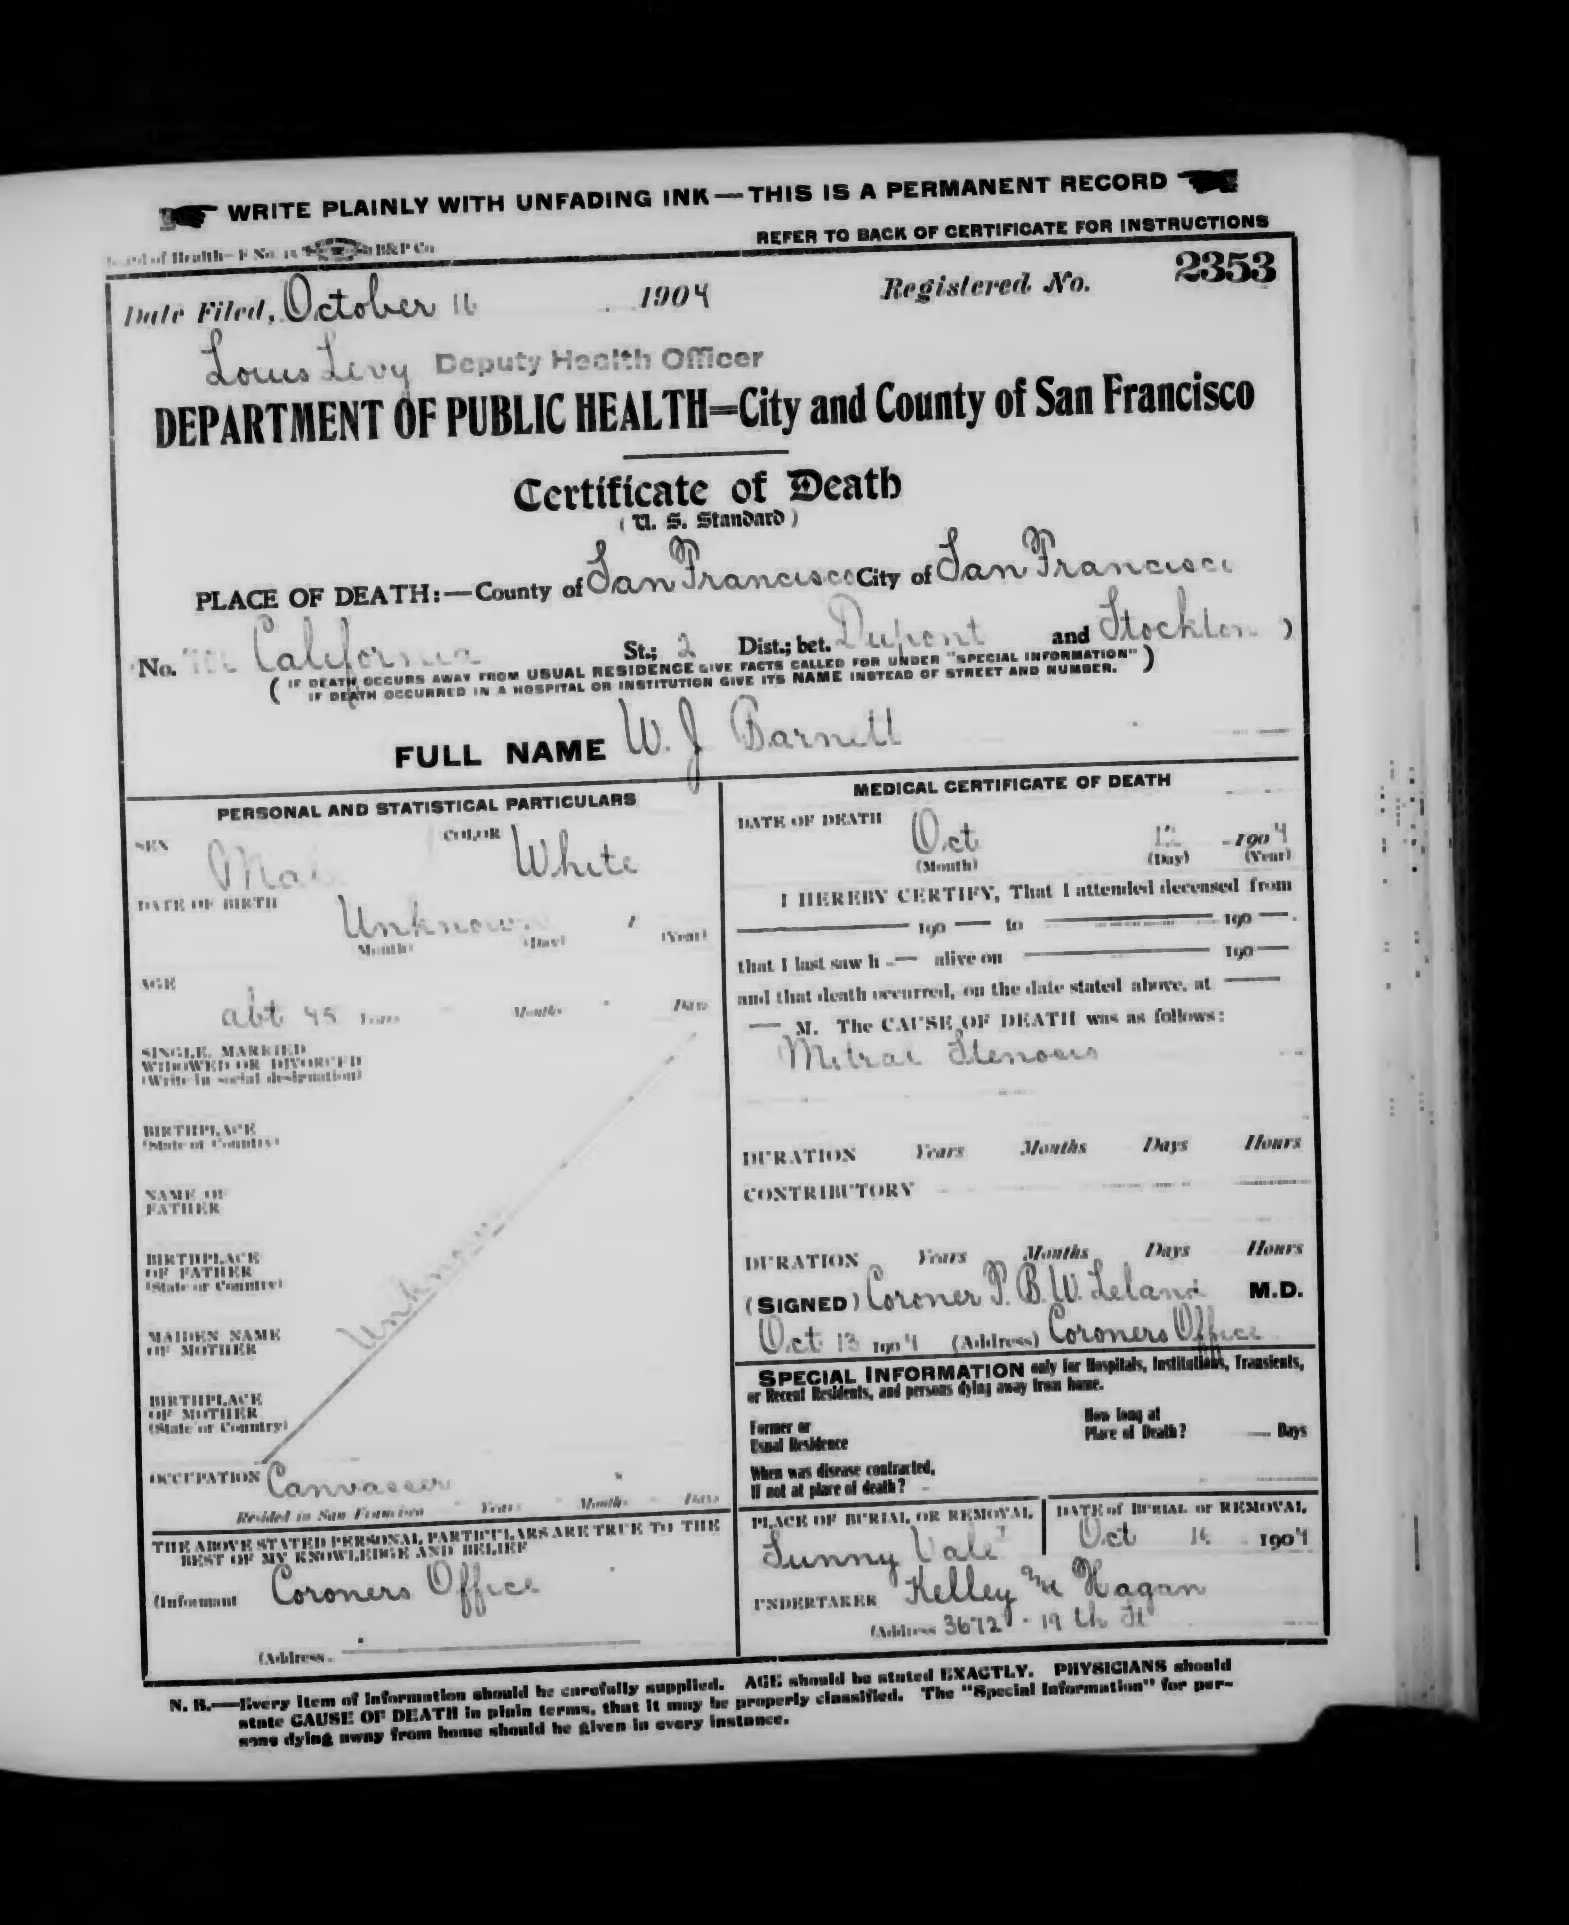 WRITE PLAINLY WITH UNFADING INK — THIS IS A PERMANENT RECORD
Board of Health—F No. 15 B&P Co
REFER TO BACK OF CERTIFICATE FOR INSTRUCTIONS
Date Filed, October 16 1904 Registered No. 2353
Louis Levy Deputy Health Officer
DEPARTMENT OF PUBLIC HEALTH=City and County of San Francisco
Certificate of Death
(U. S. Standard)
PLACE OF DEATH:—County of San Francisco City of San Francisco
No. California St.; 2 Dist.; bet. Dupont and Stockton )
( IF DEATH OCCURS AWAY FROM USUAL RESIDENCE GIVE FACTS CALLED FOR UNDER "SPECIAL INFORMATION" )
IF DEATH OCCURRED IN A HOSPITAL OR INSTITUTION GIVE ITS NAME INSTEAD OF STREET AND NUMBER.
FULL NAME W. J Barnett
PERSONAL AND STATISTICAL PARTICULARS
SEX Mal COLOR White
DATE OF BIRTH Unknown
(Month) (Day) (Year)
AGE
abt 45 Years Months Days
SINGLE, MARRIED
WIDOWED OR DIVORCED
(Write in social designation)
BIRTHPLACE
(State or Country)
NAME OF
FATHER
BIRTHPLACE
OF FATHER
(State or Country)
Unknown
MAIDEN NAME
OF MOTHER
BIRTHPLACE
OF MOTHER
(State or Country)
OCCUPATION Canvasser
Resided in San Francisco Years Months Days
THE ABOVE STATED PERSONAL PARTICULARS ARE TRUE TO THE
BEST OF MY KNOWLEDGE AND BELIEF
(Informant Coroners Office
(Address
MEDICAL CERTIFICATE OF DEATH
DATE OF DEATH Oct 12 1904
(Month) (Day) (Year)
I HEREBY CERTIFY, That I attended deceased from
— 190 — to — 190 —.
that I last saw h — alive on — 190 —
and that death occurred, on the date stated above, at —
— M. The CAUSE OF DEATH was as follows:
Mitral Stenosis
DURATION Years Months Days Hours
CONTRIBUTORY
DURATION Years Months Days Hours
(SIGNED) Coroner T. B. W. Leland M.D.
Oct 13 1904 (Address) Coroners Office
SPECIAL INFORMATION only for Hospitals, Institutions, Transients,
or Recent Residents, and persons dying away from home.
Former or
Usual Residence
How long at
Place of Death? Days
When was disease contracted,
If not at place of death?
PLACE OF BURIAL OR REMOVAL DATE of BURIAL or REMOVAL
Sunny Vale Oct 1904
UNDERTAKER Kelley Mc Hagan
(Address 3672 - 19 th St
N. B.—Every item of information should be carefully supplied. AGE should be stated EXACTLY. PHYSICIANS should
state CAUSE OF DEATH in plain terms, that it may be properly classified. The "Special Information" for per-
sons dying away from home should be given in every instance.